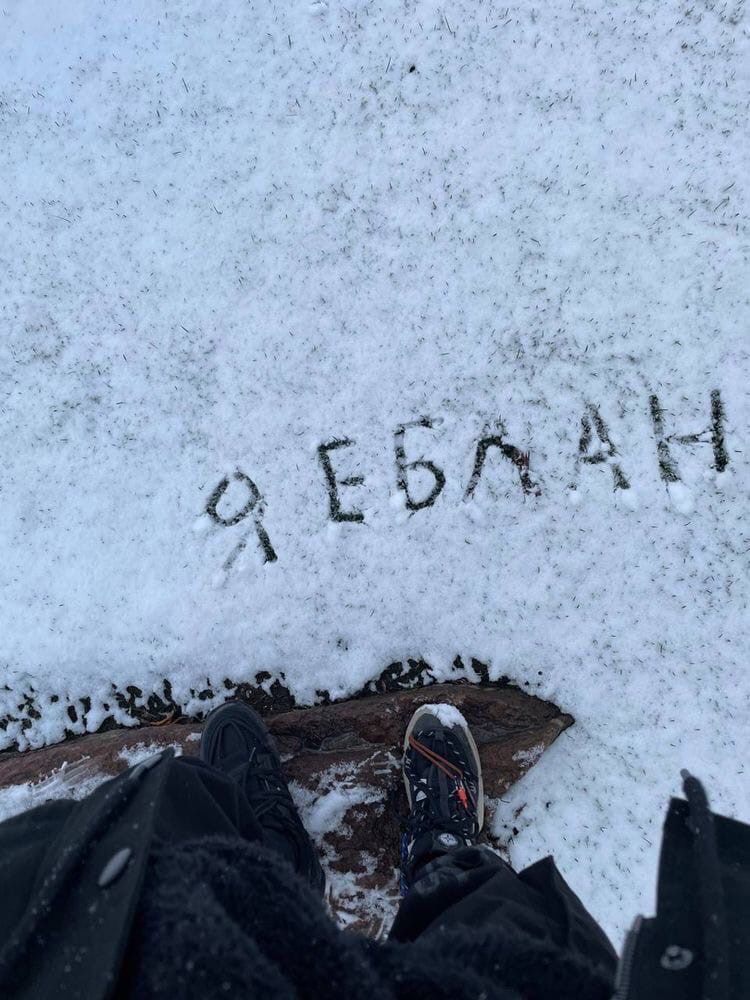 Я ЕБЛАН